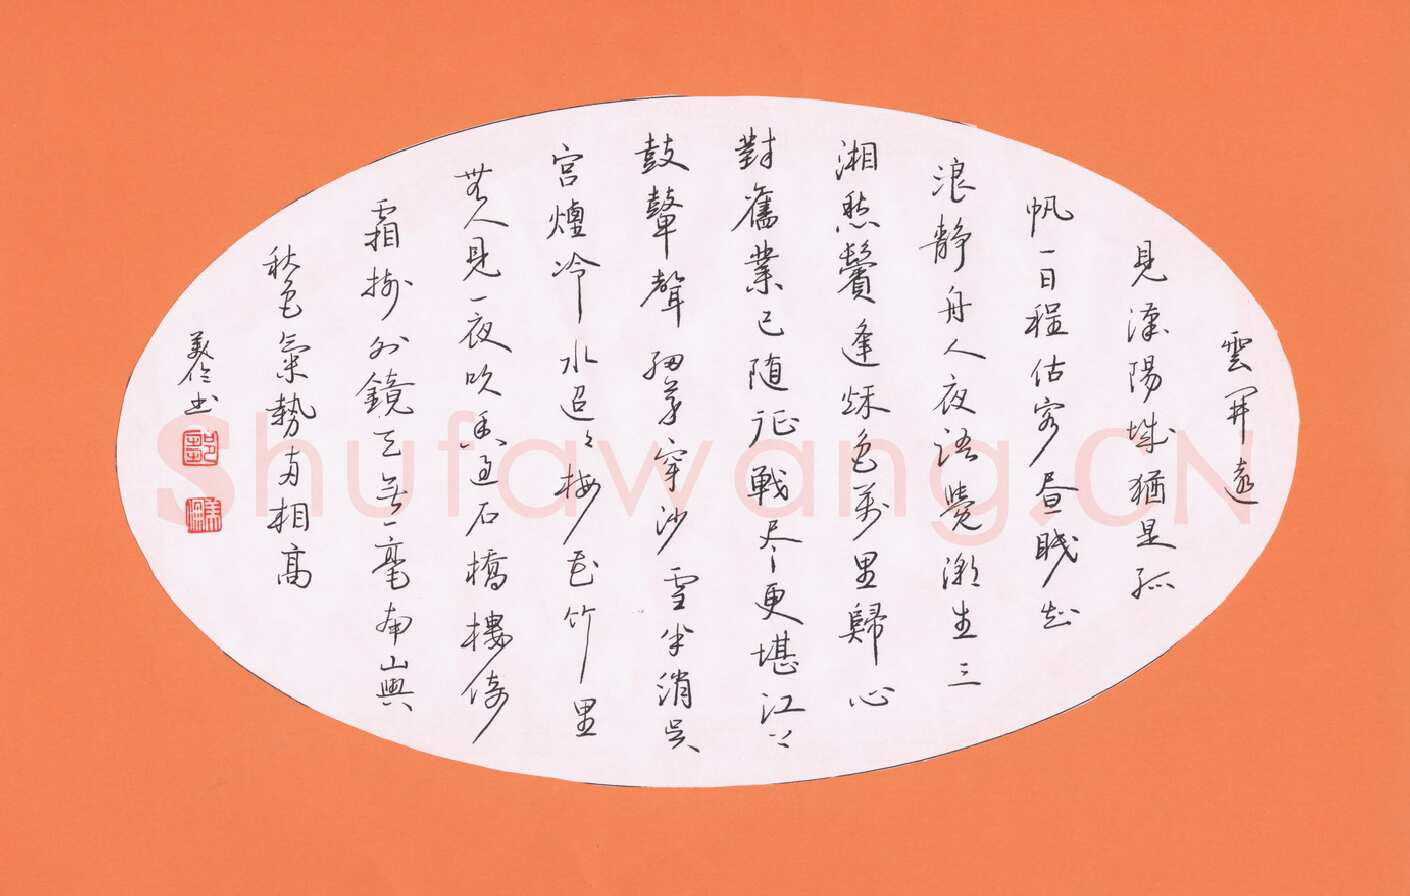 雲開遠
見漢陽城猶是孤
帆一日程估客昼眠知
浪静舟人夜語覺潮生三
湘愁鬢逢秋色萬里歸心
對舊業已随征戦尽更堪江上
鼓鼙聲 細草穿沙雪半消吴
宫煙冷水迢〻梅花竹里
無人見一夜吹香過石橋樓倚
霜樹外鏡天無一毫南山與
秋色氣勢两相高
書
Shufawang.CN